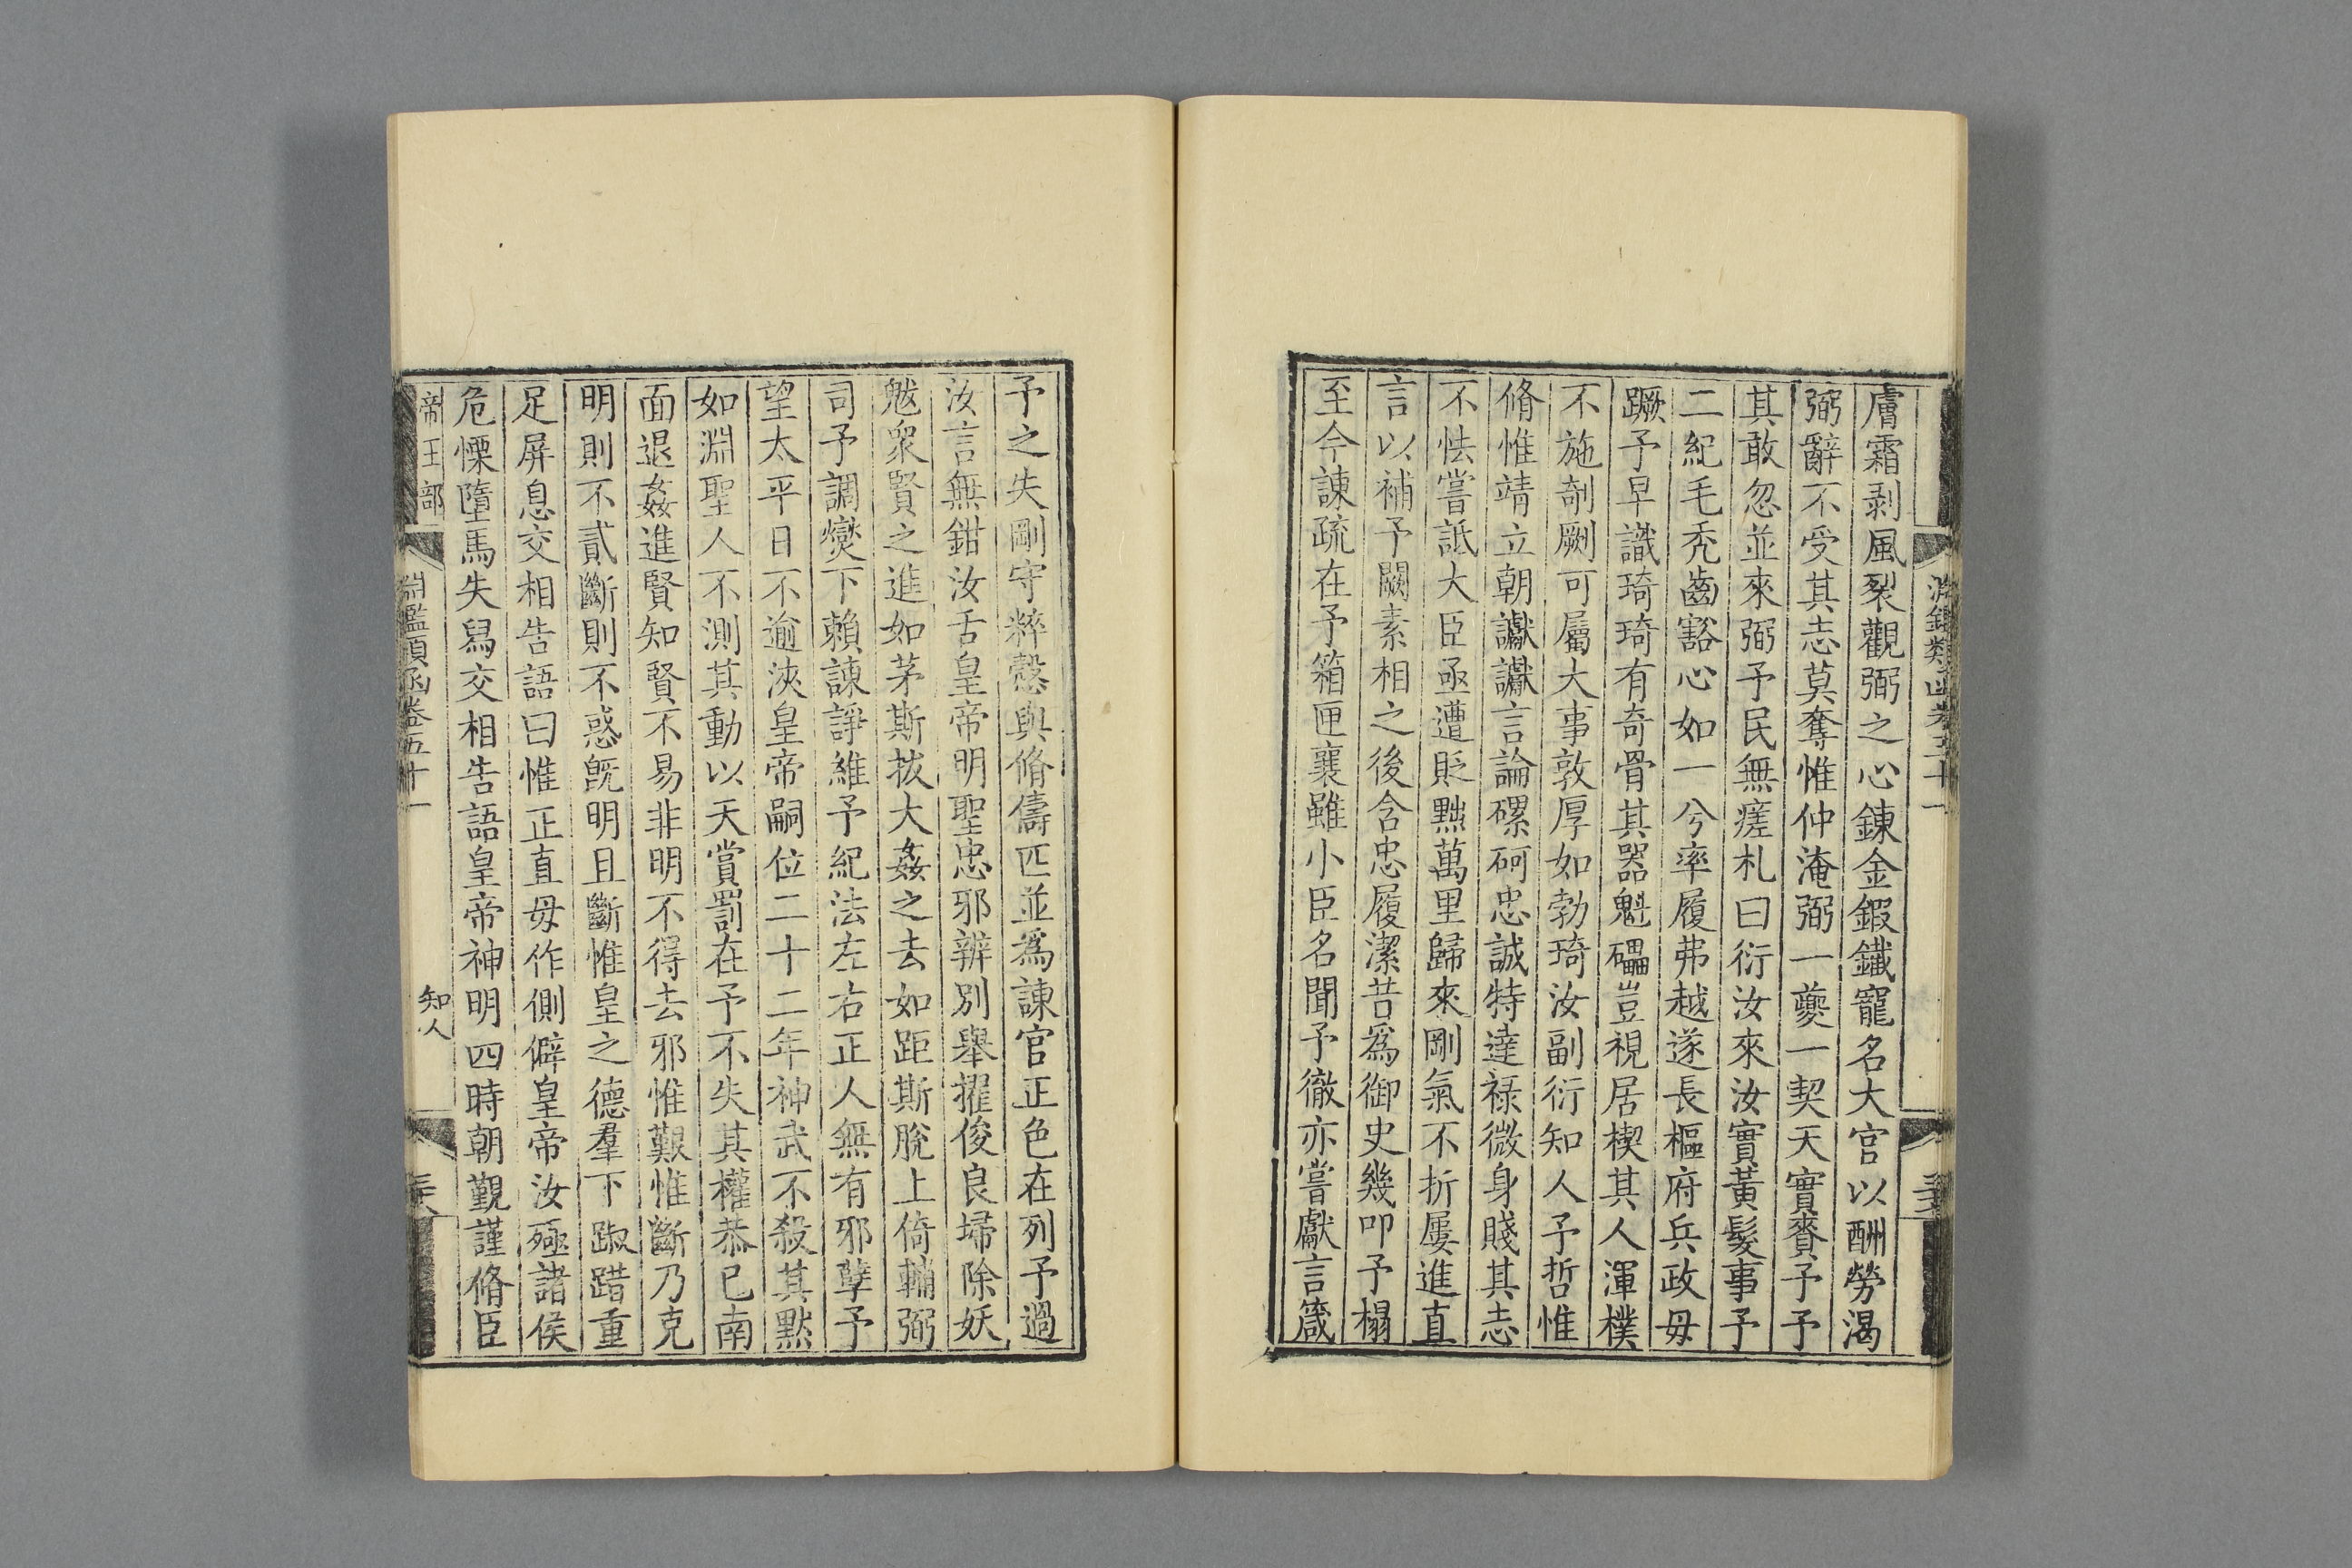 膚霜剥風裂觀弼之心鍊金鍜鐵寵名大官以酬勞渴
弼辭不受其志莫奪惟仲淹弼一夔一契天實賚予予
其敢忽並來弼予民無瘥札曰衍汝來汝實黃髮事予
二紀毛禿齒豁心如一兮率履弗越遂長樞府兵政毋
蹶予早識琦琦有奇骨其器魁礧豈視居楔其人渾樸
不施剞劂可屬大事敦厚如勃琦汝副衍知人予哲惟
脩惟靖立朝讞讞言論磥砢忠誠特達祿微身賤其志
不怯嘗詆大臣亟遭貶黜萬里歸來剛氣不折屢進直
言以補予闕素相之後含忠履潔昔爲御史幾叩予榻
至今諫疏在予箱匣襄雖小臣名聞予徹亦嘗獻言箴
予之失剛守粹慤與脩儔匹並爲諫官正色在列予過
汝言無鉗汝舌皇帝明聖忠邪辨別舉擢俊良埽除妖
魃衆賢之進如茅斯拔大姦之去如距斯脫上倚輔弼
司予調燮下賴諫諍維予紀法左右正人無有邪孽予
望太平日不逾浹皇帝嗣位二十二年神武不殺其默
如淵聖人不測其動以天賞罰在予不失其權恭已南
面退姦進賢知賢不易非明不得去邪惟艱惟斷乃克
明則不貳斷則不惑旣明且斷惟皇之德羣下踧踖重
足屏息交相告語曰惟正直毋作側僻皇帝汝殛諸侯
危慄墮馬失舄交相告語皇帝神明四時朝覲謹脩臣
帝王部 淵鑑類函卷五十一 知人